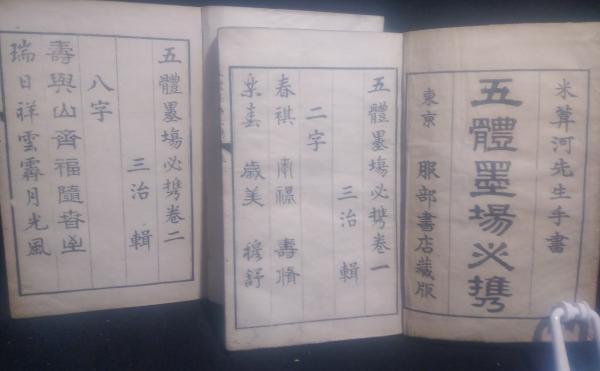 米葊河先生手書
五體墨場必携
東京 服部書店藏版
五體墨塲必携卷一
三治 輯
二字
春祺 壽脩
歲美 穆舒
五體墨塲必携卷二
三治 輯
八字
壽與山齊福隨春至
瑞日祥雲霽月光風